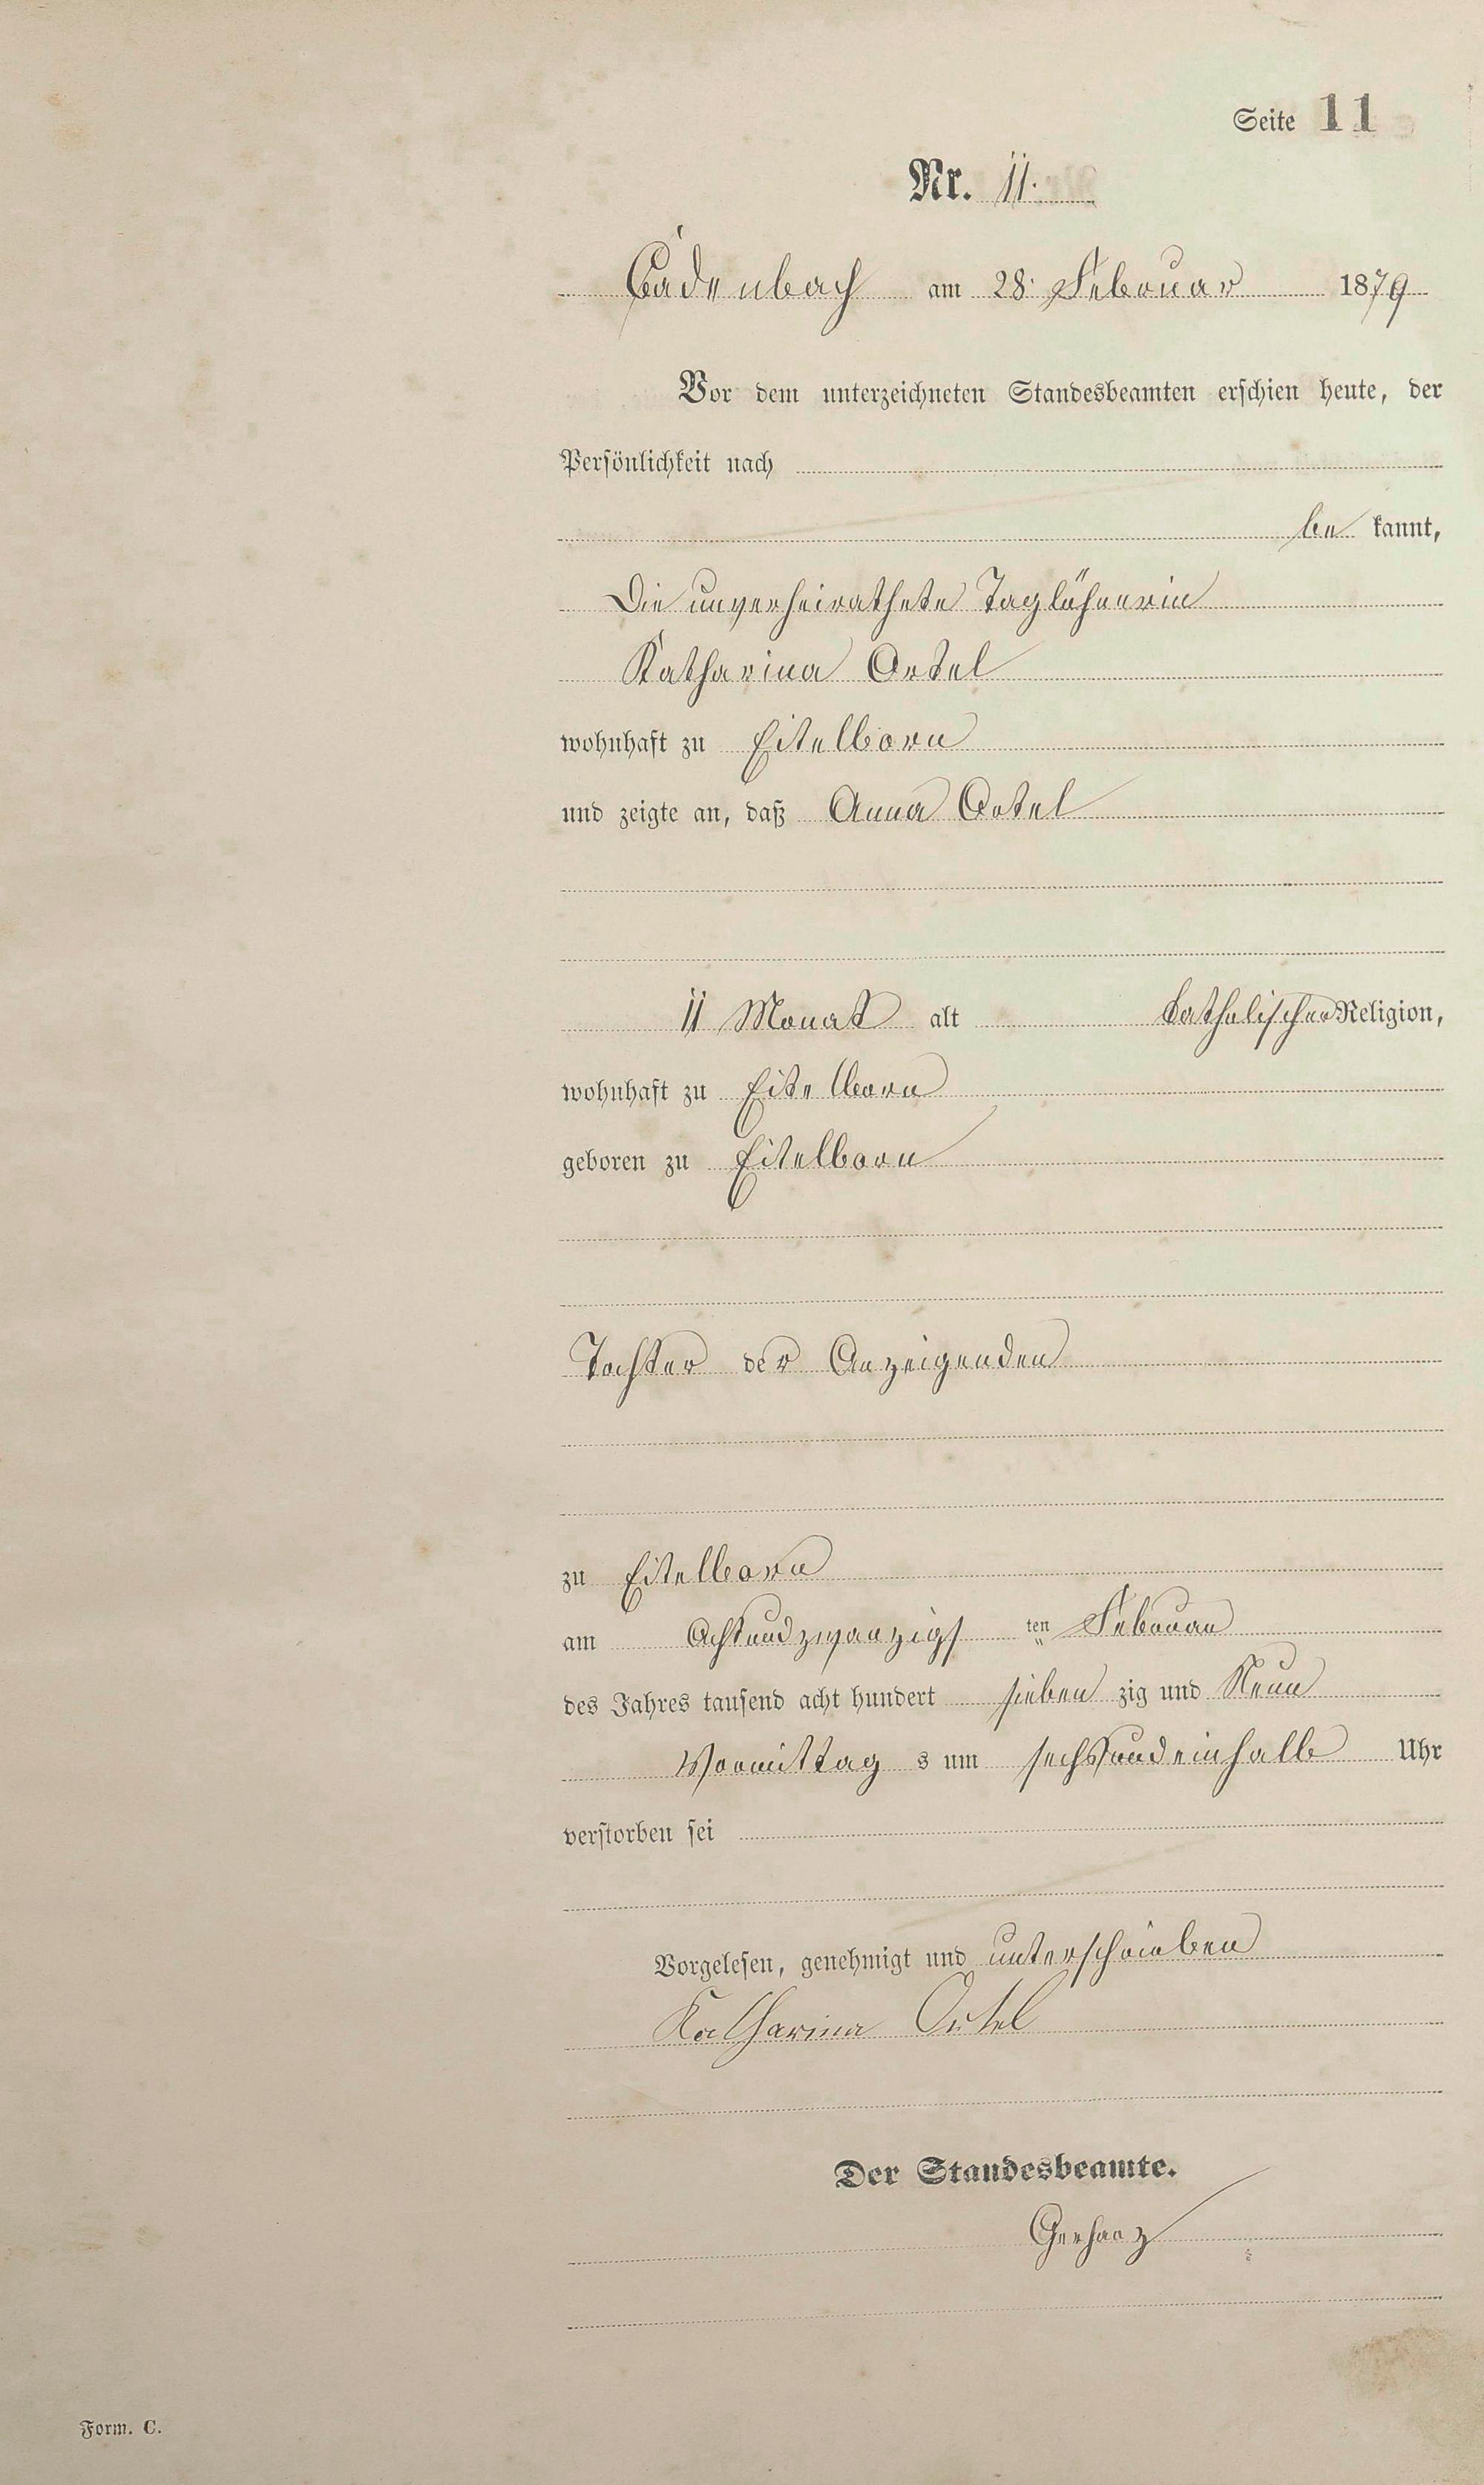 Seite 11
Nr. 11.
Cadenbach am 28. Februar 1879
Vor dem unterzeichneten Standesbeamten erschien heute, der
Persönlichkeit nach
be kannt,
Die unverheirathete Taglöhnerin
Katharina Ortel
wohnhaft zu Eitelborn
und zeigte an, daß Anna Ortel
11 Monat alt katholischer Religion,
wohnhaft zu Eitelborn
geboren zu Eitelborn
Tochter der Anzeigenden
zu Eitelborn
am Achtundzwanzigs ten Februar
des Jahres tausend acht hundert sieben zig und Neun
Vormittag s um sechsundeinhalb Uhr
verstorben sei
Vorgelesen, genehmigt und unterschrieben
Katharina Ortel
Der Standesbeamte.
Gerharz
Form. C.